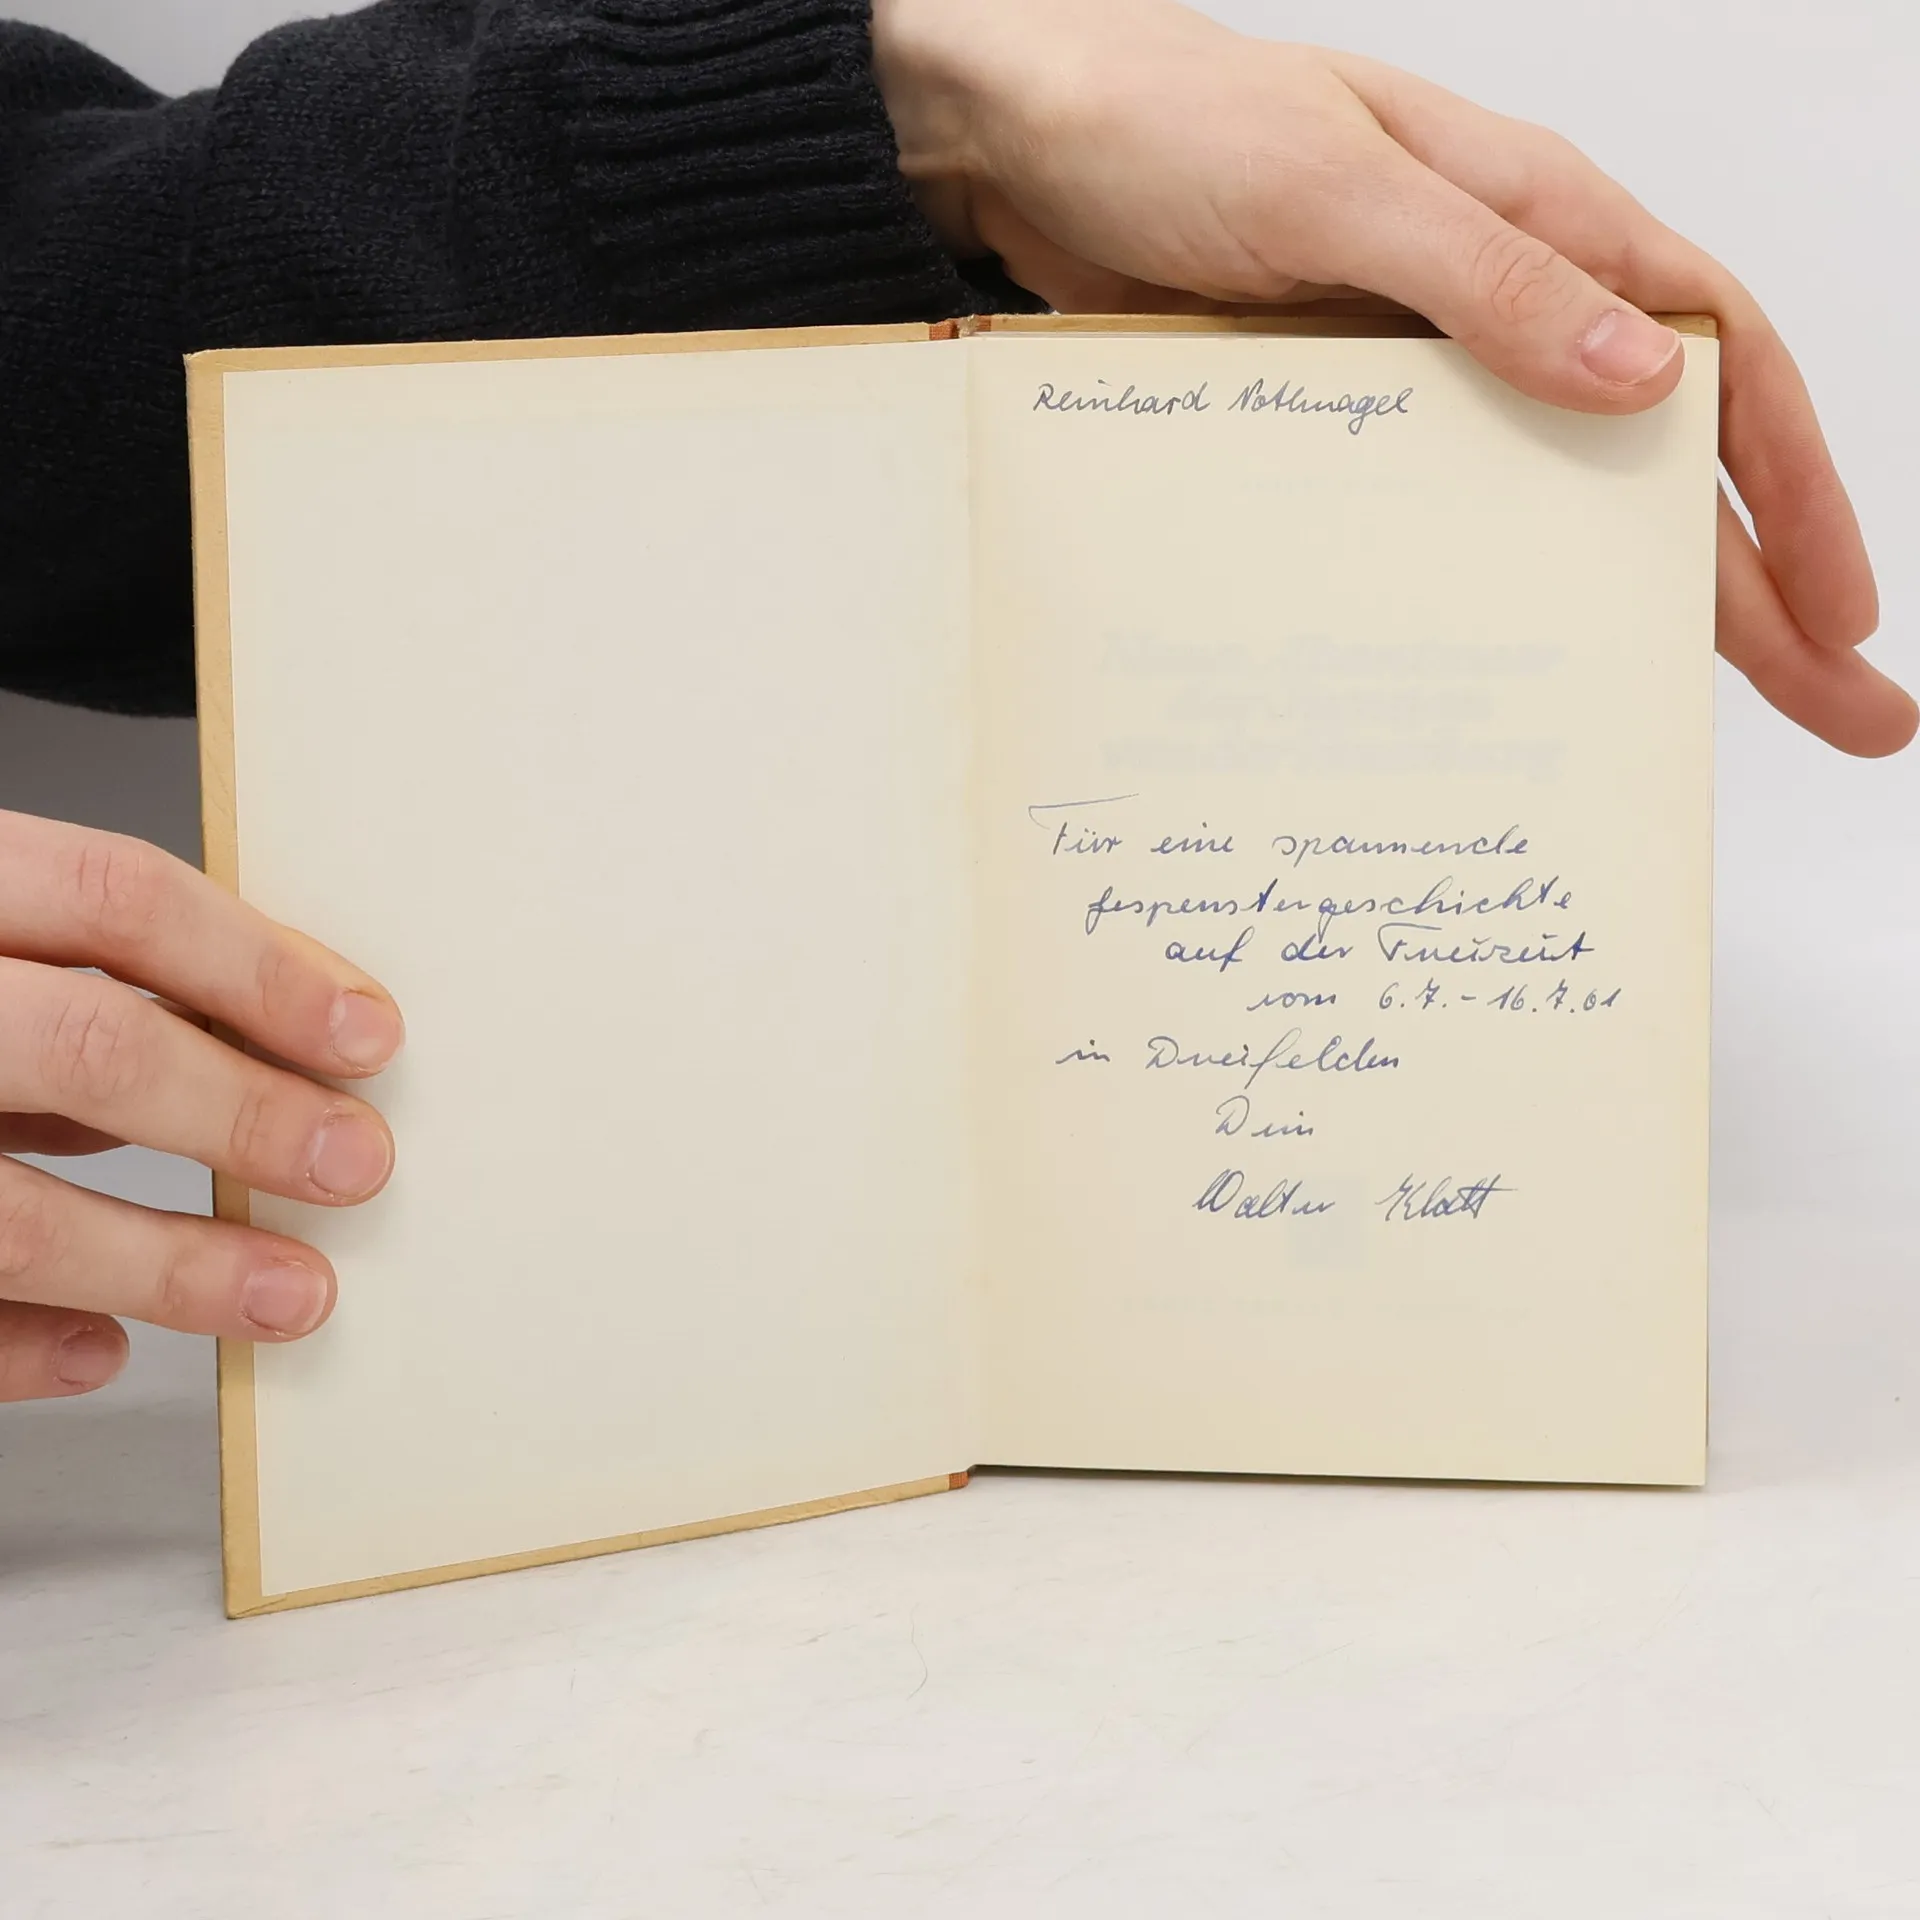 Reinhard Nothnagel
Für eine spannende
Gespenstergeschichte
auf der Freizeit
vom 6.7. - 16.7.61
in Dreifelden
Dein
Walter Klatt